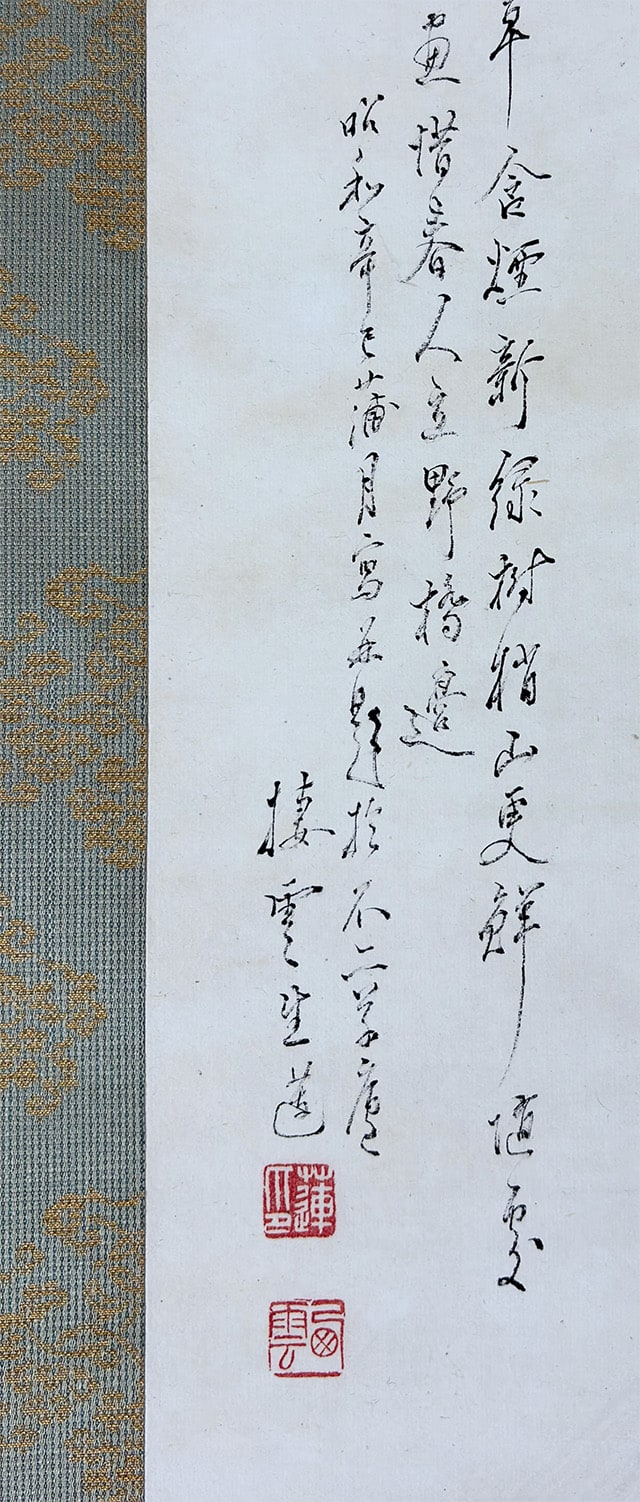 含煙新緑樹梢山更鮮處
畫惜春人立野橋邊
昭和辛巳蒲月寫并題於不二草廬
棲雲生蓮
蓮
雲